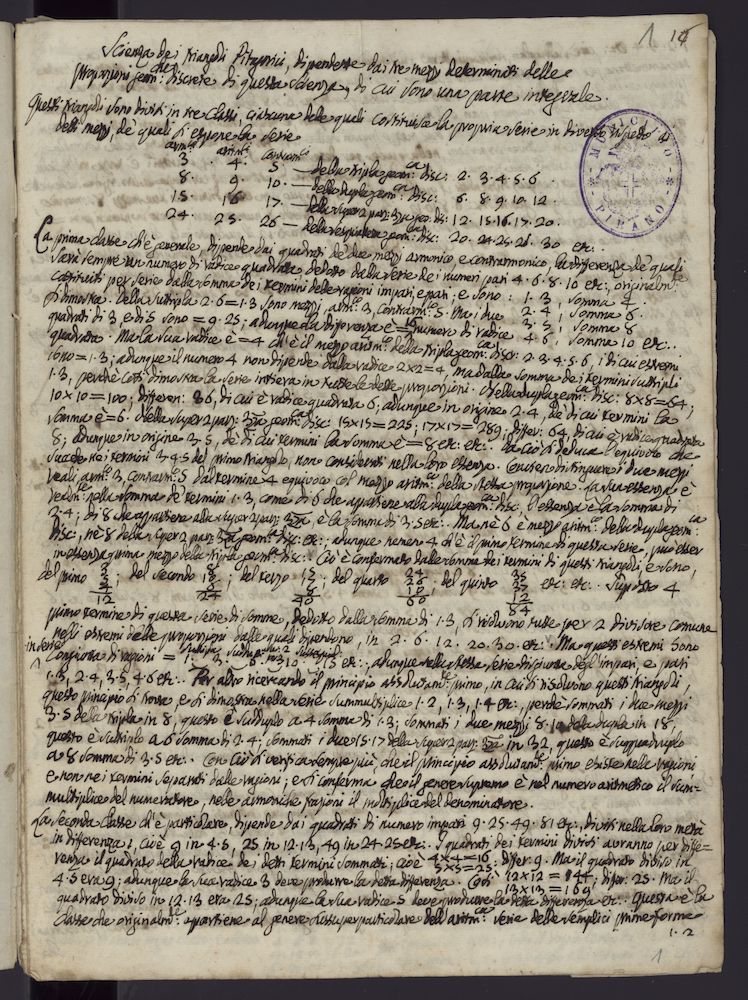 1 14
Scienza dei triangoli Pitagorici, dipendente dai tre mezzi determinati delle
proporzioni geom:che discrete di questa scienza, di cui sono una parte integrale.
Questi triangoli sono divisi in tre classi, ciascuna delle quali costituisce la propria serie in diverso rispetto a
detti mezzi, de quali si espone la serie
3 . 4 . 5 — della tripla geom:ca disc: 2 . 3 . 4 . 5 . 6 .
8 . 9 . 10 . — della dupla geom:ca disc: 6 . 8 . 9 . 10 . 12 .
15 . 16 . 17 . — della super 2 parz: 3za geo: dis: 12 . 15 . 16 . 17 . 20 .
24 . 25 . 26 — della geom:ca disc: 20 . 24 . 25 . 26 . 30 etc: .
MUNICIPIO PIRANO
La prima classe ch'è generale, dipende dai quadrati de due mezzi armonico, e contrarmonico, la differenza de quali
sarà sempre un numero di radice quadrata, dedotto dalla serie dei numeri pari 4 . 6 . 8 . 10 etc:, originalm:te
costituiti per serie dalla somma dei termini delle ragioni impari, e pari; e sono : 1 . 3 , somma 4 .
Si dimostra . Della tripla 2 . 6 = 1 . 3 sono mezzi, arm:co 3, contrarm:co 5 . Ma i due 2 . 4 , somma 6 .
quadrati di 3, e di 5 sono = 9 . 25 ; adunque la differenza è = 16 numero di radice 3 . 5 , somma 8
quadrata . Ma la sua radice è = 4 ch'è il mezzo aritm:co della tripla geom:ca disc: 2 . 3 . 4 . 5 . 6 , i di cui estremi 4 . 6 , somma 10 etc: .
sono = 1 . 3 ; adunque il numero 4 non dipende dalla radice 2 x 2 = 4, ma dalla somma dei termini
1 . 3, perchè così dimostra la serie intiera in tutte le dette proporzioni . Nella dupla geom:ca disc: 8 x 8 = 64 ;
10 x 10 = 100 ; differen: 36, di cui è radice quadrata 6 ; adunque in origine 2 . 4, de di cui termini la
somma è = 6 . Nella super 2 parz: 3za geom:ca disc: 15 x 15 = 225 ; 17 x 17 = 289 ; differ: 64, di cui è radice quadrata
8 ; adunque in origine 3 . 5, de di cui termini la somma è = 8 etc: etc: . Da ciò si deduce l'equivoco che
succede ne termini 3 4 5 del primo triangolo, non considerati nella loro essenza . Conviene distinguere i due mezzi
reali, arm:co 3, contrarm:co 5 dal termine 4 equivoco col mezzo aritm:co della stessa proporzione . La sua essenza è
realm:te nella somma de termini 1 . 3, come di 6 che appartiene alla dupla geom:ca disc: l'essenza è la somma di
2 . 4 ; di 8 che appartiene alla super 2 parz: 3za è la somma di 3 . 5 etc: . Ma nè 6 è mezzo aritm:co della dupla geom:ca
disc:, nè 8 della super 2 parz: 3za geom:ca disc: etc: ; adunque nemeno 4 ch'è il primo termine di questa serie, può esser
in essenza mezzo della tripla geom:ca disc: . Ciò è confermato dalle somme dei termini di questi triangoli, e sono,
del primo 3 4 5 12 ; del secondo 24 ; del terzo 40 ; del quarto 60 ; del quinto 84 etc: etc: . Supposto 4
primo termine di questa serie di somme, dedotto dalla somma di 1 . 3, si risolvono tutte per 2 divisore comune
negli estremi delle proporzioni dalle quali dipendono, in 2 . 6 . 12 . 20 . 30 etc: . Ma questi estremi sono
in serie
congiunta di ragioni = 1 . 3 . 6 . 10 . 15 etc:, adunque nella stessa serie disgiunta degl'impari, e pari
1 . 3, 2 . 4, 3 . 5, 4 . 6 etc: . Per altro ricercando il principio assolutam:te primo, in cui si risolvono questi triangoli,
questo principio si trova, e si dimostra nella serie summultiplice 1 . 2, 1 . 3, 1 . 4 etc:, perchè sommati i due mezzi
3 . 5 della tripla in 8, questo è suduplo a 4 somma di 1 . 3 ; sommati i due mezzi 8 . 10 della dupla in 18,
questo è sutriplo a 6 somma di 2 . 4 ; sommati i due 15 . 17 della super 2 parz: 3za in 32, questo è suquadruplo
a 8 somma di 3 . 5 etc: . Con ciò si verifica sempre più, che il principio assolutam:te primo esiste nelle ragioni
e non ne i termini separati dalle ragioni ; e si conferma che il genere supremo è nel numero aritmetico il sum-
multiplice del numeratore, nelle armoniche frazioni il multiplice del denominatore .
La seconda classe ch'è particolare, dipende dai quadrati di numero impari 9 . 25 . 49 . 81 etc:, divisi nella loro metà
in differenza 1, cioè 9 in 4 . 5, 25 in 12 . 13, 49 in 24 . 25 etc: . I quadrati dei termini divisi avranno per diffe-
renza il quadrato della radice de i detti termini sommati ; cioè 4 x 4 = 16 ; 5 x 5 = 25 ; differ: 9 . Ma il quadrato diviso in
4 . 5 era 9 ; adunque la sua radice 3 deve produrre la detta differenza . Così 12 x 12 = 144 ; 13 x 13 = 169 ; differ: 25 . Ma il
quadrato diviso in 12 . 13 era 25 ; adunque la sua radice 5 deve produrre la detta differenza etc: . Questa è la
classe che originalm:te appartiene al genere superparticolare dell'aritm:ca serie delle semplici prime forme
1 . 2
1